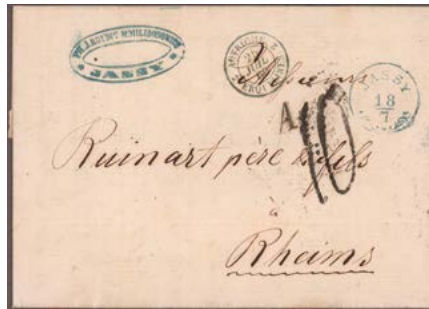 JASSY
AUTRICHE
JASSY
18
7
Messieurs
A.
10
Ruinart père & fils
à
Rheims